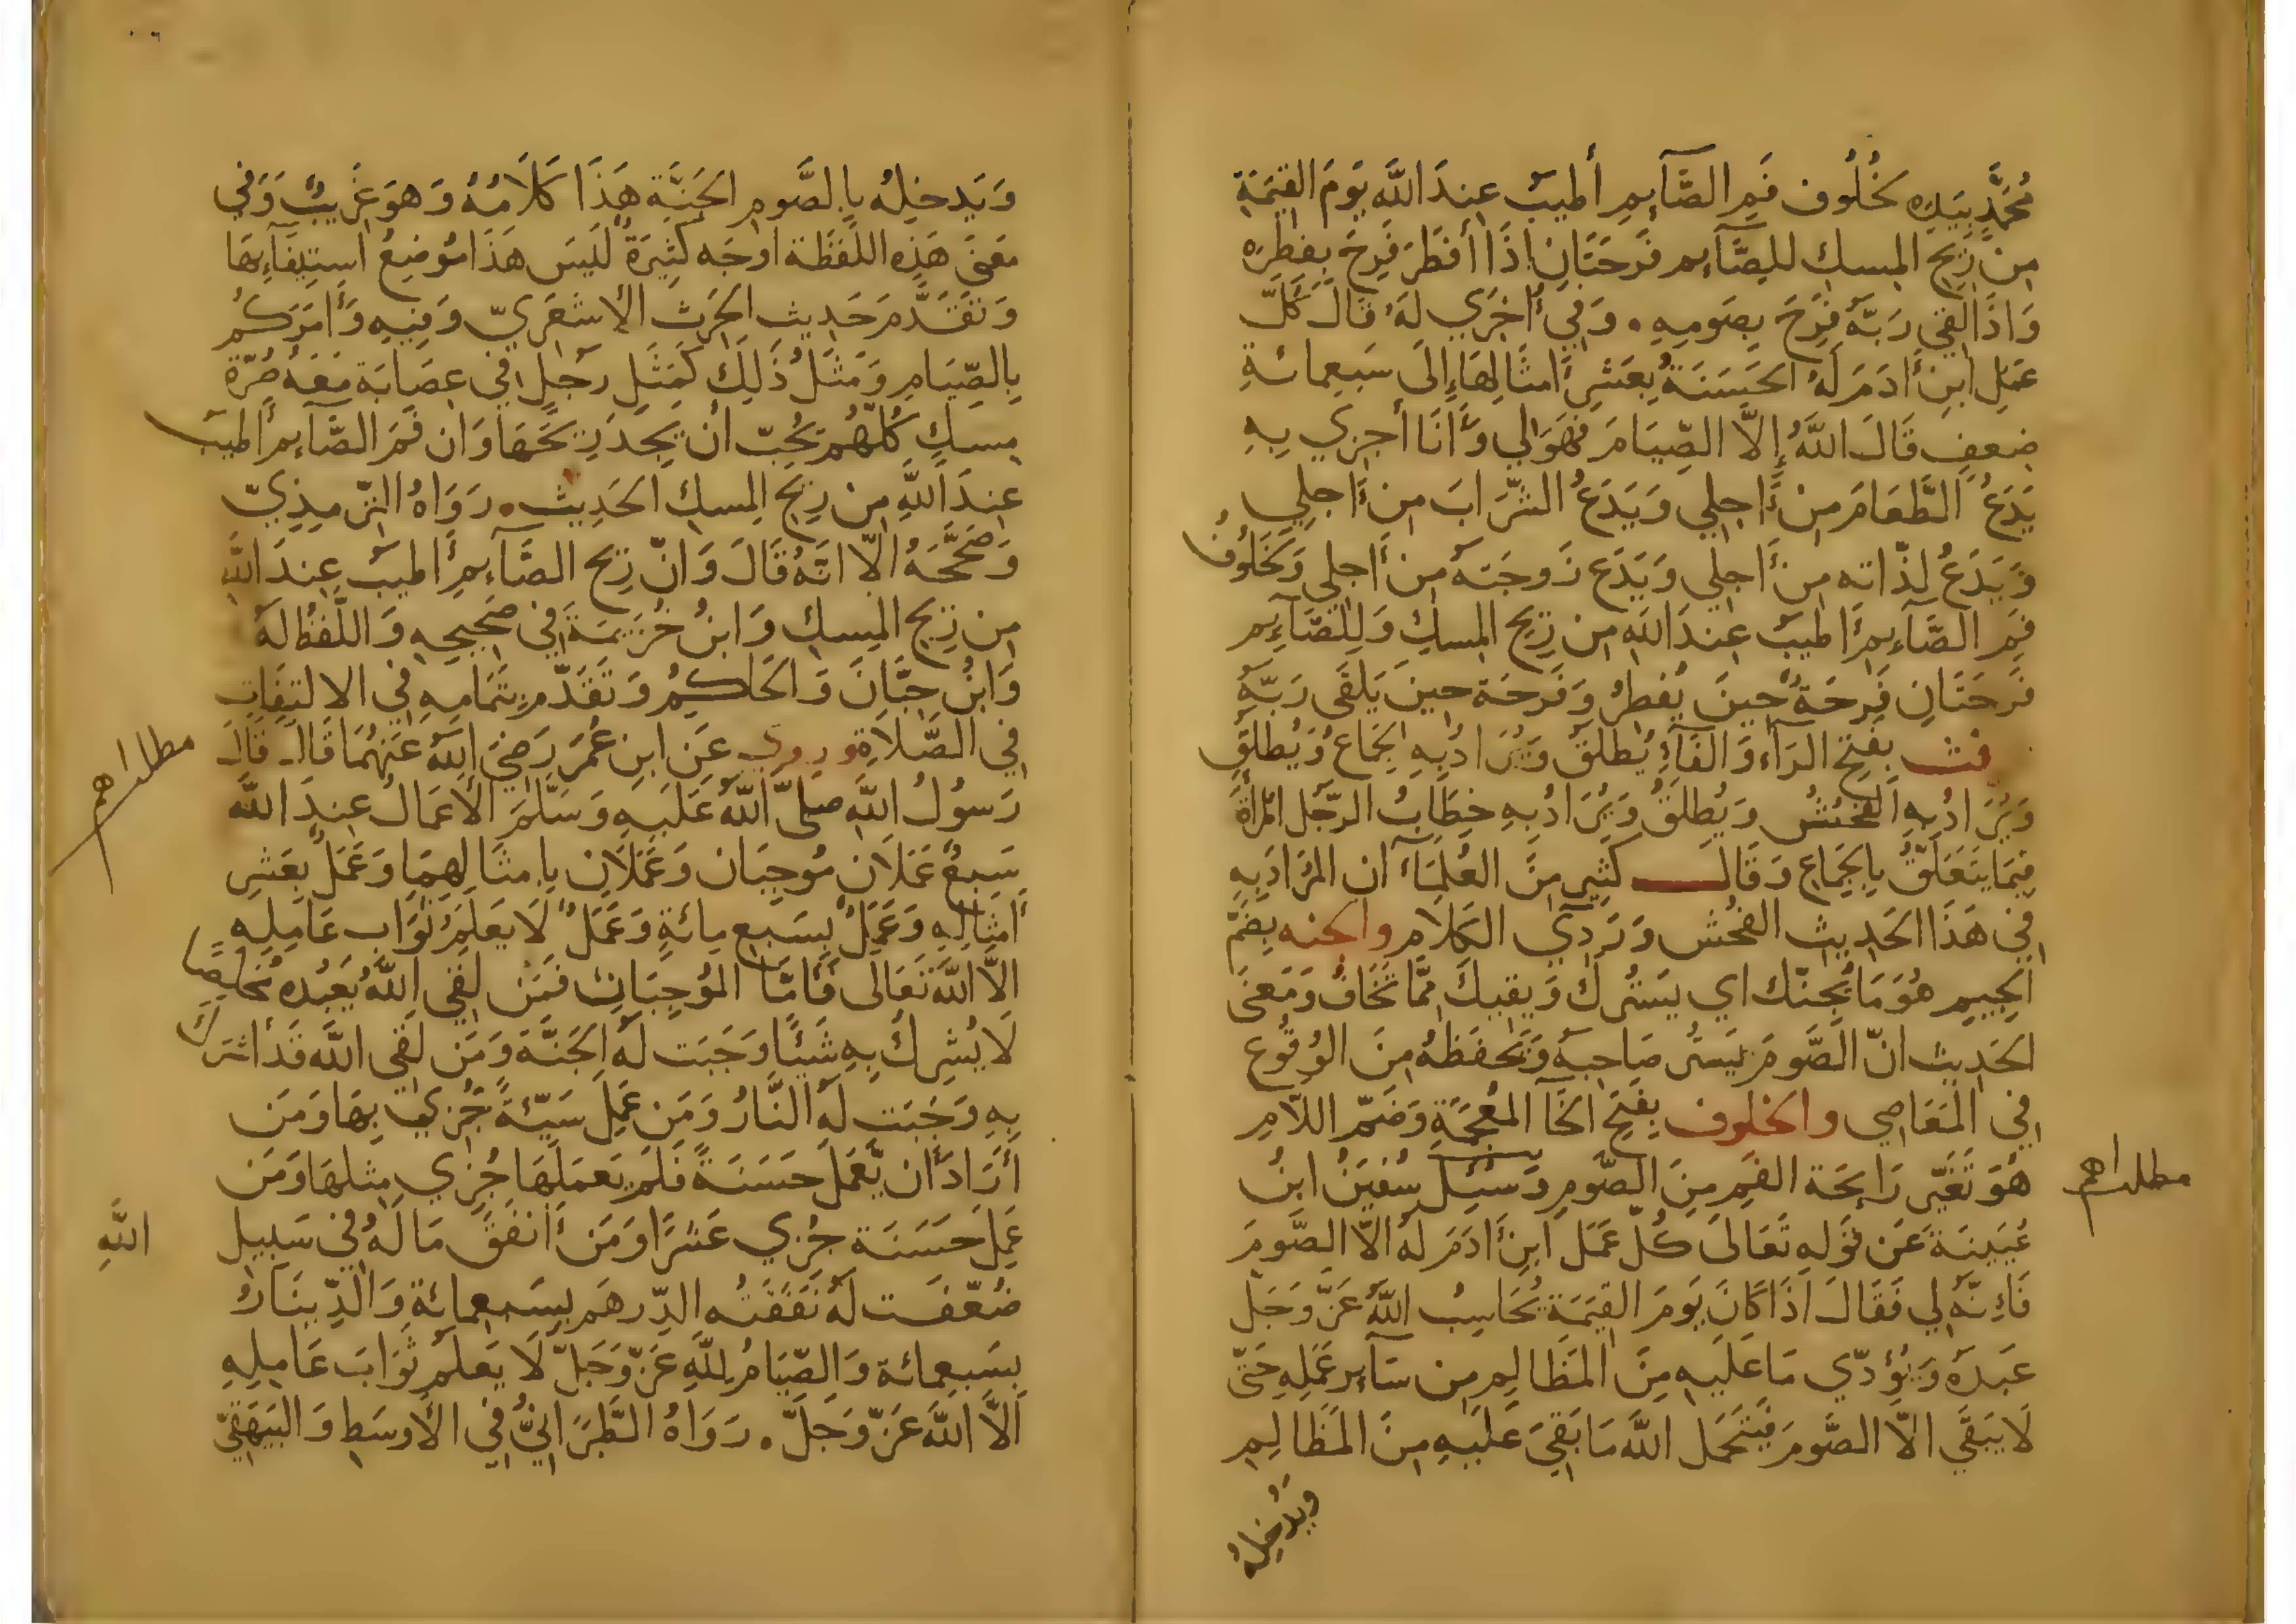 مُحَمَّدٍ بِيَدِهِ لَخُلُوف فَمِ الصَّآىِٕمِ أَطيَبُ عِندَ اللَّهِ يَومَ القِيٰمَةِ
مِن رِيحِ المِسكِ لِلصَّآىِٕمِ فَرحَتَانِ اذَا أَفطَرَ فَرِحَ بِفِطرِهِ
وَاذَا لَقِيَ رَبَّهُ فَرِحَ بِصَومِهِ . وَفِي أُخرَي لَهُ قَالَ كُلّ
عَمَلِ ابنِ أَادَمَ لَهُ الحَسَنَةُ بِعَشرِ امثَالِهَا إِلَى سَبعِمائَةِ
ضِعفٍ قَالَ اللَّهُ إِلاّ الصِّيَامَ فَهُوَ لِي وَأَنَا أَجزِي بِهِ
يَدَعُ الطَّعَامَ مِن أَجلِي وَيَدَعُ الشَّرَابَ مِن أَجلِي
وَيَدَعُ لذّاته مِن أَجلِي وَيَدَعُ زَوجَتَهُ مِن أَجلِي وَلَخُلُوفُ
فَمِ الصَّآىِٕمِ أَطيَبُ عِندَ اللَّهِ مِن رِيحِ المِسكِ وَلِلصَّآىِٕمِ
فَرحَتَانِ فَرحَةٌ حِينَ يُفطِرُ وَفَرحَة حِينَ يَلقَى رَبَّهُ
فث بِفَتحِ الرَآءِ وَالفَآءِ يُطلَقُ وَيُرَادُ بِهِ الجِمَاعُ وَيُطلَقُ
وَيُرَادُ بِهِ الفُحشُ وَيُطلَقُ وَيُرَادُ بِهِ خِطَابُ الرَّجُل المَرأَةَ
فِيمَا يَتَعَلَّقُ بِالجِمَاعِ وَقَالَ كَثِير مِنَ العُلَمَآءِ ان المُرَادَ بِهِ
فِي هَذَا الحَدِيث الفُحش وَرَدِيّ الكَلَامِ والجنه بِضَمِّ
الجِيمِ هُوَ مَا يُجِنّك اي يَستُرك وَيَقِيكَ مِمَّا تَخَافُ وَمَعنَى
الحَدِيث انّ الصَّومَ يَستُر صَاحِبَهُ وَيَحفَظُهُ مِنَ الوُقُوعِ
فِي المَعَاصِي والخلوف بِفَتحِ الخَآ المُعجَمَةِ وَضَمّ اللاَّمِ
هُوَ تَغَيّر رَائِحَة الفَمِ مِنَ الصَّومِ وَسُئِلَ سُفيٰنُ ابنُ
عُيَينَةَ عَن قَولِهِ تَعَالَى كُلّ عَمَل ابنِ أَادَمَ لَهُ الاّ الصَّومَ
فَاِنَّهُ لِي فَقَالَ اذَا كَانَ يَومَ القِيٰمَة يُحَاسِبُ اللَّهُ عَزَّ وَجَلَّ
عَبدَهُ وَيُؤَدّي مَا عَلَيهِ مِنَ المَظَالِمِ مِن سَآىِٕرِ عَمَلِهِ حَتّى
لَا يَبقَى الاّ الصَّومَ فَيَتَحَمَّل اللَّه مَا بَقِيَ عَلَيهِ مِنَ المَظَالِمِ
وَيُدخِلُهُ
مطلب اهم
وَيُدخِلهُ بِالصَّومِ الجَنَّة هَذَا كَلَامُهُ وَهوَ غَرِيبٌ وَفِي
مَعنَى هَذِهِ اللَّفظَة أوجُه كَثِيرَةٌ لَيسَ هَذَا مَوضِعُ استِيفَآىِٕهَا
وَتَقَدَّمَ حَدِيث الحٰرِث الاشعَرِيّ وَفِيهِ وَأَامُرُكُم
بِالصِّيَامِ وَمَثَلُ ذَلِكَ كَمَثَلِ رَجُلٍ فِي عِصَابَة مَعَهُ صُرَّة
مِسكٍ كُلّهُم يُحِبّ ان يَجِدَ رِيحَهَا وَان فَمَ الصَّآىِٕمِ أَطيَبُ
عِندَ اللَّهِ مِن رِيحِ المِسكِ الحَدِيث . رَوَاهُ التِّرمِذِيّ
وَصَحَّحَهُ الاّ انَّهُ قَالَ وَانّ رِيح الصَّآىِٕمِ أَطيَبُ عِندَ اللَّهِ
مِن رِيحِ المِسكِ وَابنُ خُزَيمَةَ فِي صَحِيحِهِ وَاللَّفظُ لَهُ
وَابنُ حِبَّانَ وَالحَاكِمُ وَتَقَدَّمَ بِتَمَامِهِ فِي الالتِفَات
فِي الصَّلَاةِ وروي عَنِ ابنِ عُمَرَ رَضِيَ اللَّهُ عَنهُمَا قَالَ قَالَ
رَسُولُ اللَّهِ صَلَّى اللَّهُ عَلَيهِ وَسَلَّمَ الاَعمَالُ عِندَ اللَّهِ
سَبعٌ عَمَلَانِ مُوجِبَان وَعَمَلَانِ بِامثَالِهِمَا وَعَمَلٌ بِعَشرِ
أَمثَالِهِ وَعَمَلٌ بِسَبعِ مِائَةٍ وَعَمَلٌ لَا يَعلَمُ ثَوَابَ عَامِلِهِ
الاَّ اللَّه تَعَالَى فَأَمَّا المُوجِبَان فَمَن لَقِيَ اللَّهَ يَعبُدُه مُخلِصًا
لَا يُشرِكُ بِهِ شَيئًا وَجَبَت لَهُ الجَنَّة وَمَن لَقِيَ اللَّه قَد أشرَكَ
بِهِ وَجَبَت لَهُ النَّارُ وَمَن عَمِلَ سَيّئَةً جُزِيَ بِهَا وَمَن
أَرَادَ أن يَّعمَلَ حَسَنَةً فَلَم يَعمَلهَا جُزِي مِثلهَا وَمَن
عَمِلَ حَسَنَة جُزِي عَشرًا وَمَن أَنفَقَ مَالَهُ فِي سَبِيلِ
اللَّهِ
ضُعّفَت لَهُ نَفَقَتُه الدِّرهَم بِسَبعِمِائَةٍ وَالدِّينَارُ
بِسَبعِمِائة وَالصِّيَامُ لِلَّهِ عَزَّ وَجَلَّ لَا يَعلَم ثَوَابَ عَامِلِهِ
الاَّ اللَّهَ عَزّ وَجَلّ . رَوَاهُ الطَّبَرَانِيُّ فِي الأَوسَطِ وَالبَيهَقِيّ
مطلب اهم